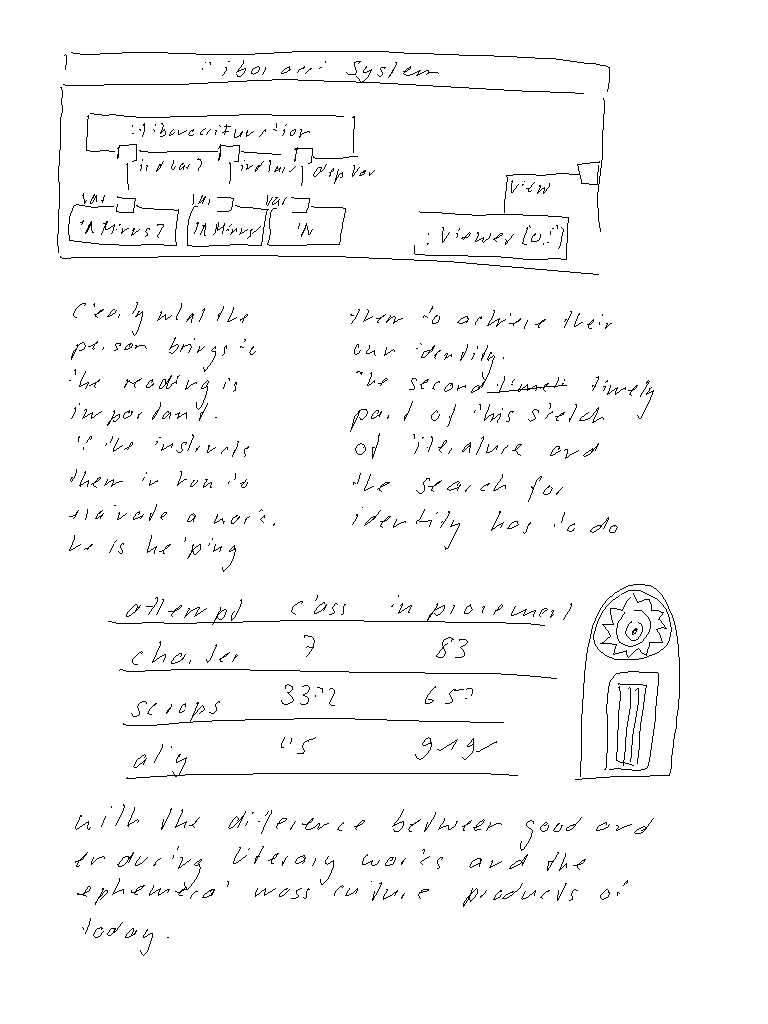 Fibonacci System
:FibonacciFunction
indVar2 indVar depVar
var var var
:NMinus2 :NMinus :N
view
:Viewer
Clearly what the
person brings to
the reading is
important.
If he instructs
them in turn to
a work.
he is helping
them to achieve their
own identity.
The second timely
part of this sketch
of literature and
the search for
identity has to do
attempt class improvement
charter 7 83
scraps
with the difference between good and
enduring literary works and the
ephemeral mass culture products of
today.